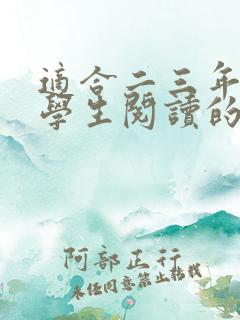 適合二三年
學生閱讀的
阿部正行
未經同意禁止轉載